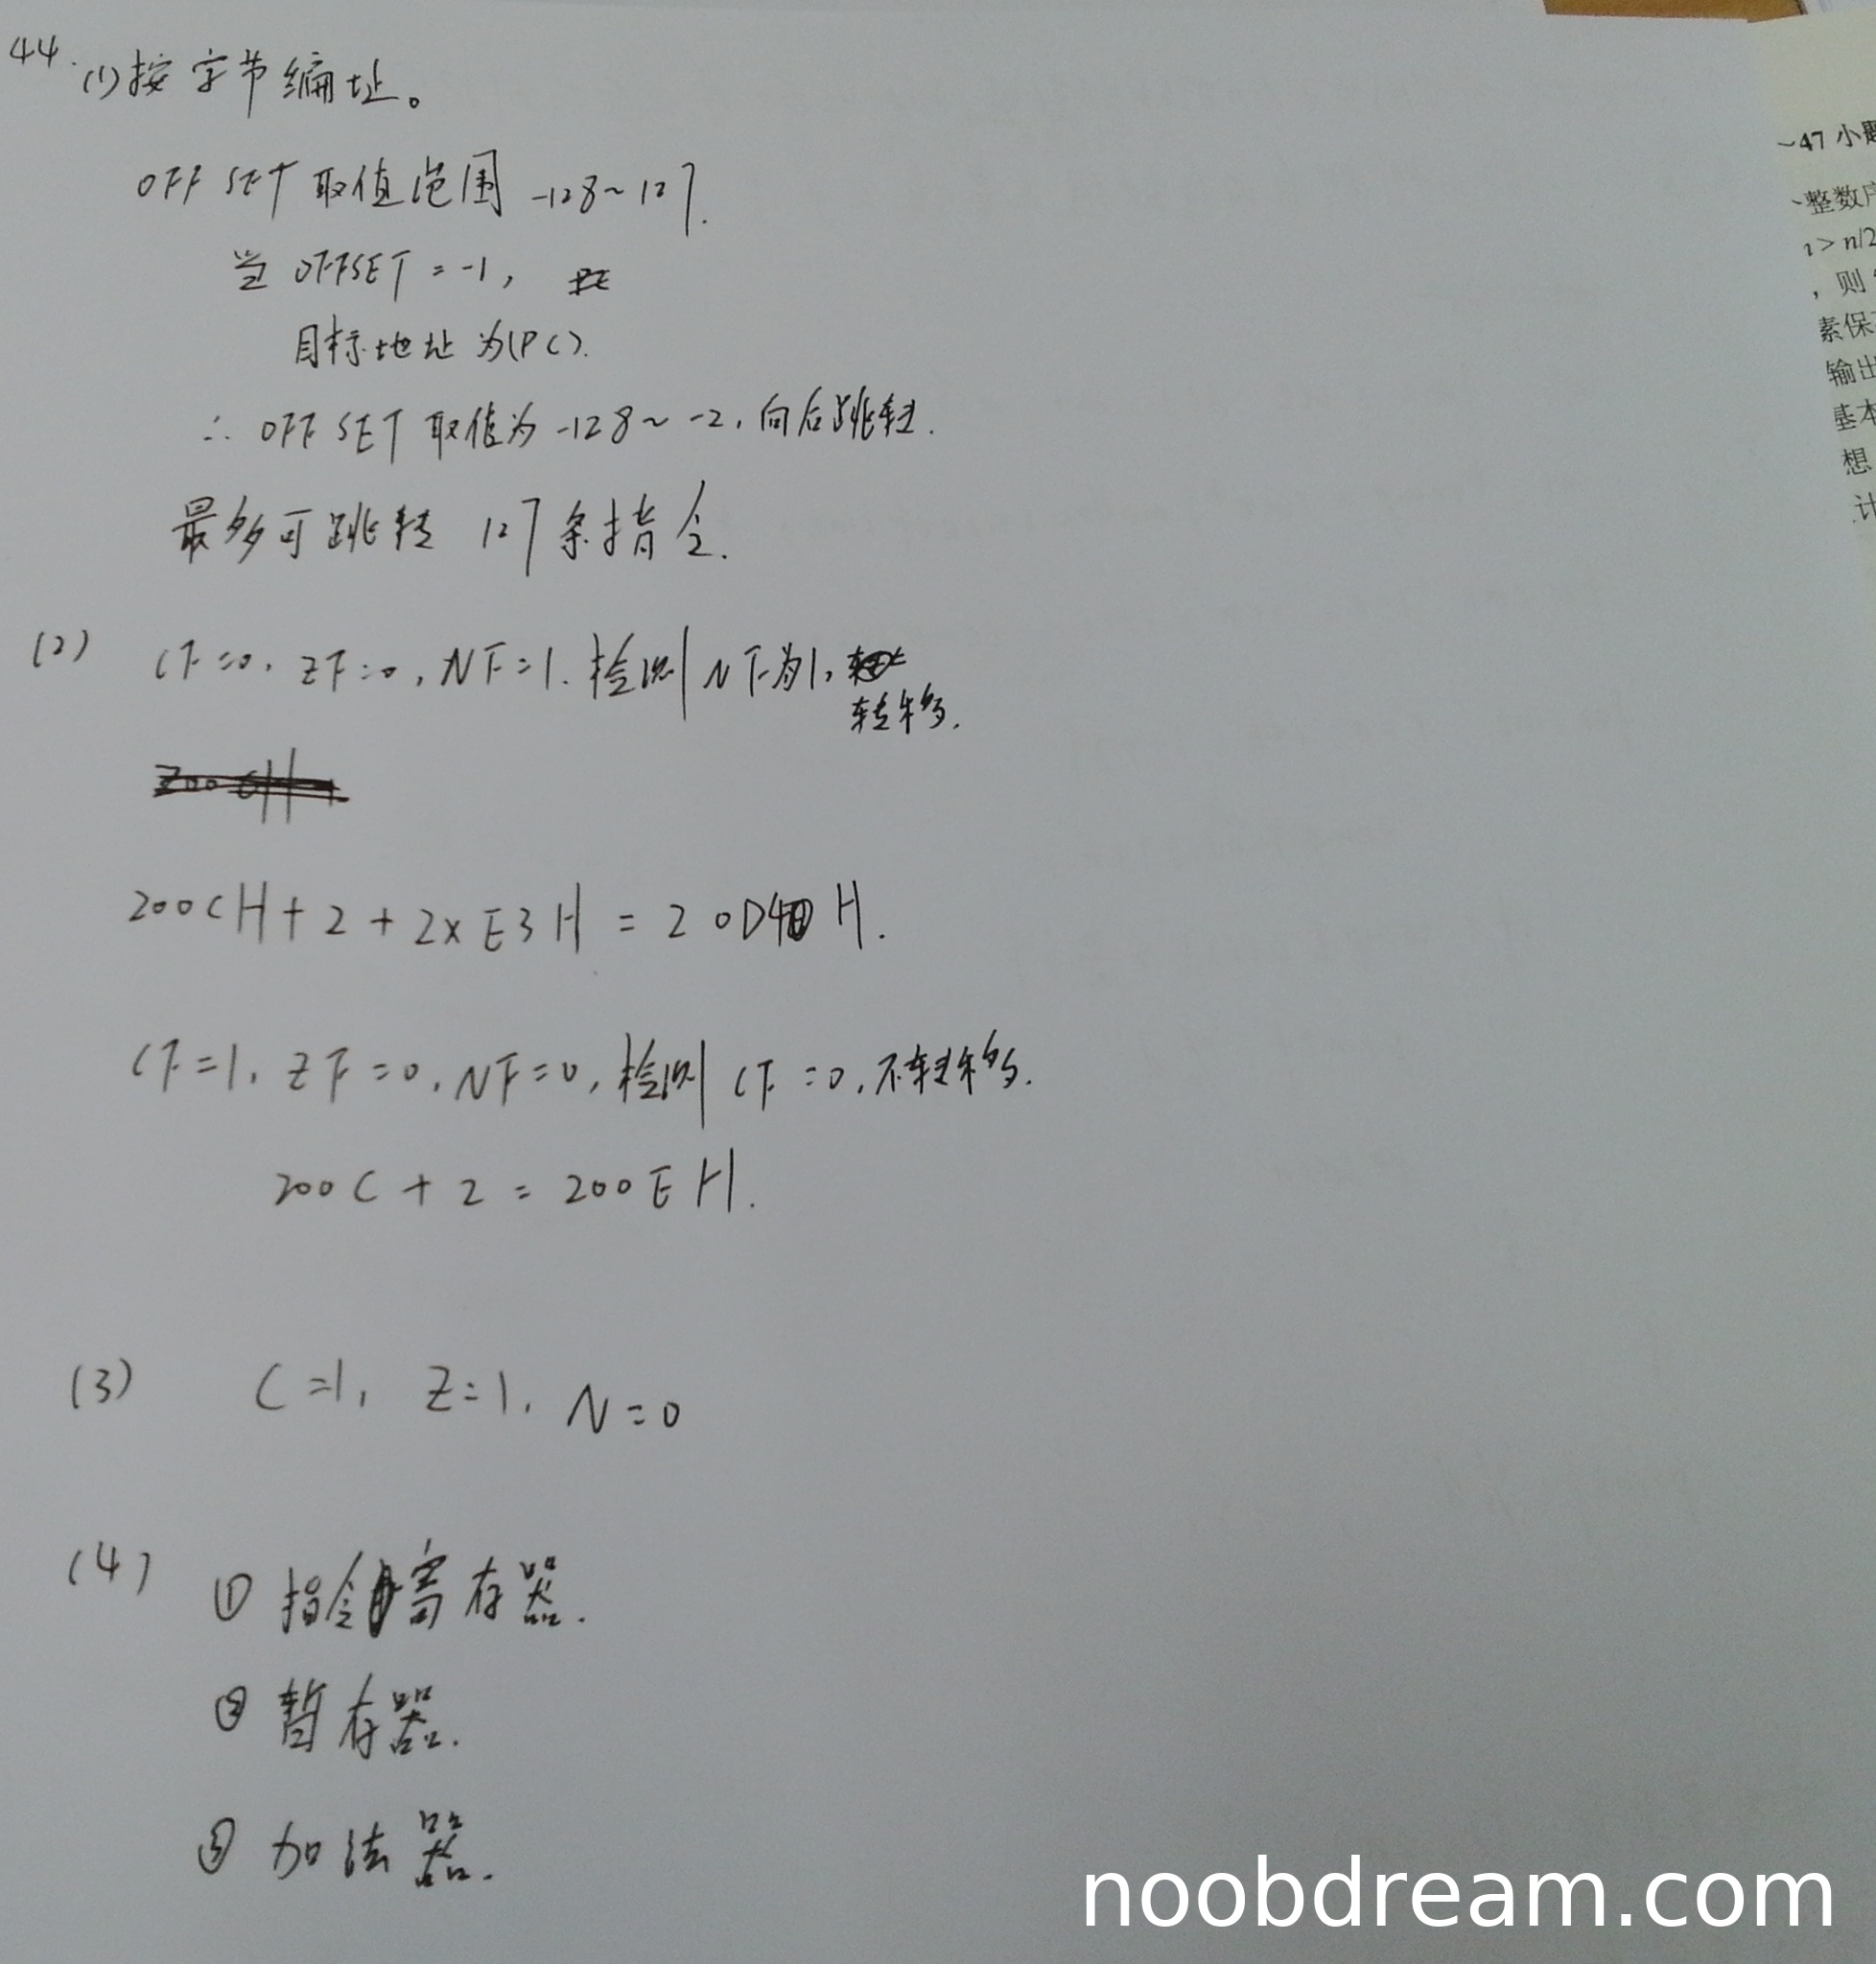 44.(1)按字节编址。
OFFSET取值范围 -128~127.
当 OFFSET = -1,
目标地址为(PC).
∴ OFFSET 取值为 -128~-2, 向后跳转.
最多可跳转 127条指令.
(2) CF=0, ZF=0, NF=1. 检测NF为1,
转移.
200CH+2+2×E3H = 20D4H.
CF=1, ZF=0, NF=0, 检测 CF=0, 不转移.
200C+2=200EH.
(3) C=1, Z=1, N=0
(4) ① 指令寄存器.
② 暂存器.
③ 加法器.
~47 小题
整数序
> n/2
，则
素保
输出
基本
想
计
noobdream.com